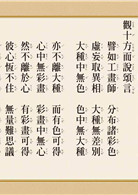 觀十方而說頌言
譬如工畫師 分布諸彩色
虛妄取異相 大種無差別
大種中無色 色中無大種
亦不離大種 而有色可得
心中無彩畫 彩畫中無心
然不離於心 有彩畫可得
彼心恆不住 無量難思議